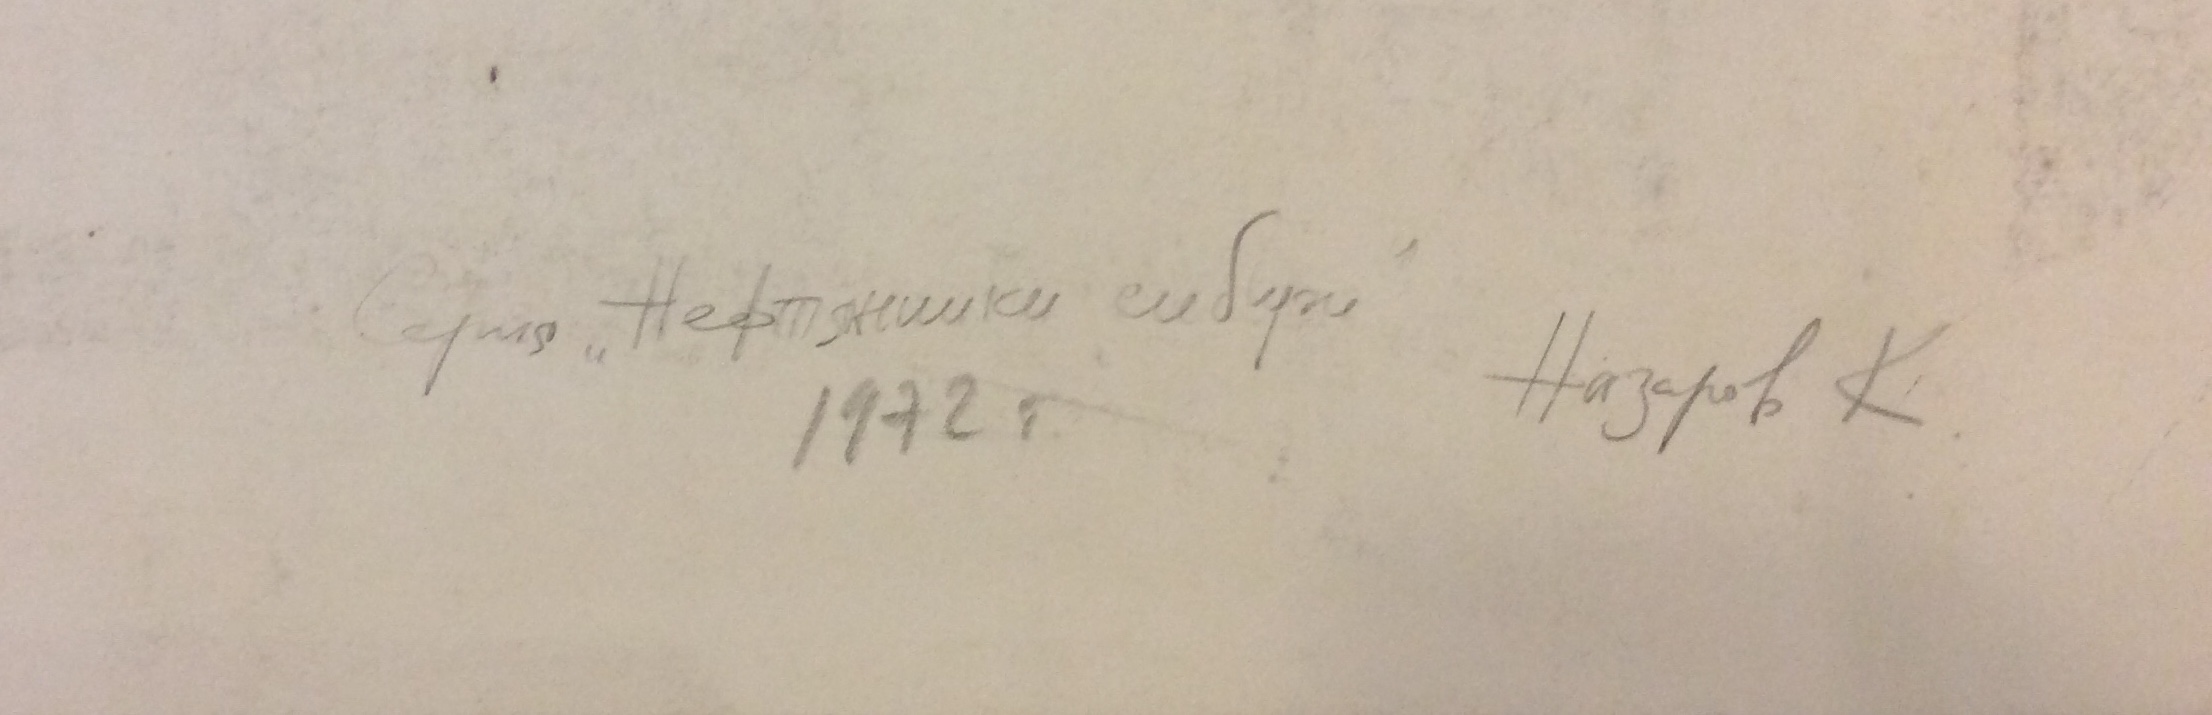 Серия „Нефтяники сибири"
1972 г.
Назаров К.